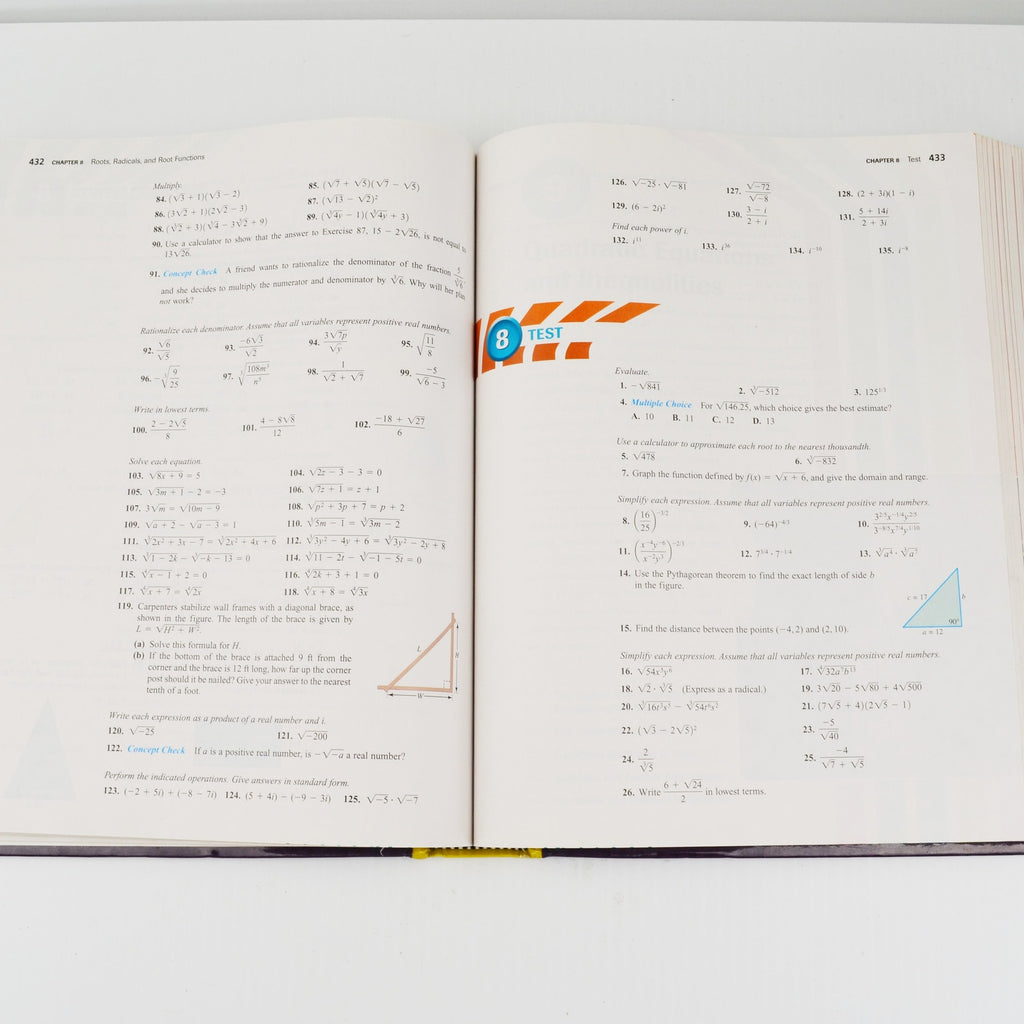 432 CHAPTER 8 Roots, Radicals, and Root Functions
Multiply.
84. (√3 + 1)(√3 − 2)
85. (√7 + √5)(√7 − √5)
86. (3√2 + 1)(2√2 − 3)
87. (√13 − √2)²
88. (∛2 + 3)(∛4 − 3∛2 + 9)
89. (∛4y − 1)(∛4y + 3)
90. Use a calculator to show that the answer to Exercise 87, 15 − 2√26, is not equal to
13√26.
91. Concept Check A friend wants to rationalize the denominator of the fraction 5/∛6,
and she decides to multiply the numerator and denominator by ∛6. Why will her plan
not work?
Rationalize each denominator. Assume that all variables represent positive real numbers.
92. √6/√5 93. −6√3/√2 94. 3√7p/√y 95. √(11/8)
96. −∛(9/25) 97. ∛(108m³/n⁵) 98. 1/(√2 + √7) 99. −5/(√6 − 3)
Write in lowest terms.
100. (2 − 2√5)/8 101. (4 − 8√8)/12 102. (−18 + √27)/6
Solve each equation.
103. √(8x + 9) = 5 104. √(2z − 3) − 3 = 0
105. √(3m + 1) − 2 = −3 106. √(7z + 1) = z + 1
107. 3√m = √(10m − 9) 108. √(p² + 3p + 7) = p + 2
109. √(a + 2) − √(a − 3) = 1 110. ∛(5m − 1) = ∛(3m − 2)
111. ∛(2x² + 3x − 7) = ∛(2x² + 4x + 6) 112. ∛(3y² − 4y + 6) = ∛(3y² − 2y + 8)
113. ∛(1 − 2k) − ∛(−k − 13) = 0 114. ∛(11 − 2t) − ∛(−1 − 5t) = 0
115. ∜(x − 1) + 2 = 0 116. ∜(2k + 3) + 1 = 0
117. ∜(x + 7) = ∜(2x) 118. ∜(x + 8) = ∜(3x)
119. Carpenters stabilize wall frames with a diagonal brace, as
shown in the figure. The length of the brace is given by
L = √(H² + W²).
(a) Solve this formula for H.
(b) If the bottom of the brace is attached 9 ft from the
corner and the brace is 12 ft long, how far up the corner
post should it be nailed? Give your answer to the nearest
tenth of a foot.
L
H
W
Write each expression as a product of a real number and i.
120. √−25 121. √−200
122. Concept Check If a is a positive real number, is −√−a a real number?
Perform the indicated operations. Give answers in standard form.
123. (−2 + 5i) + (−8 − 7i) 124. (5 + 4i) − (−9 − 3i) 125. √−5 · √−7
CHAPTER 8 Test 433
126. √−25 · √−81 127. √−72/√−8 128. (2 + 3i)(1 − i)
129. (6 − 2i)² 130. (3 − i)/(2 + i) 131. (5 + 14i)/(2 + 3i)
Find each power of i.
132. i¹¹ 133. i³⁶ 134. i⁻¹⁰ 135. i⁻⁸
8 TEST
Evaluate.
1. −√841 2. ∛−512 3. 125^(1/3)
4. Multiple Choice For √146.25, which choice gives the best estimate?
A. 10 B. 11 C. 12 D. 13
Use a calculator to approximate each root to the nearest thousandth.
5. √478 6. ∛−832
7. Graph the function defined by f(x) = √(x + 6), and give the domain and range.
Simplify each expression. Assume that all variables represent positive real numbers.
8. (16/25)^(−3/2) 9. (−64)^(−4/3) 10. 3^(2/5)x^(−1/4)y^(2/5) / 3^(−8/5)x^(7/4)y^(1/10)
11. (x⁻⁴y⁻⁶/x⁻²y³)^(−2/3) 12. 7^(3/4) · 7^(−1/4) 13. ∛a⁴ · ∛a⁷
14. Use the Pythagorean theorem to find the exact length of side b
in the figure.
c = 17
b
90°
a = 12
15. Find the distance between the points (−4, 2) and (2, 10).
Simplify each expression. Assume that all variables represent positive real numbers.
16. √(54x⁵y⁶) 17. ∜(32a⁷b¹³)
18. √2 · ∛5 (Express as a radical.) 19. 3√20 − 5√80 + 4√500
20. ∛(16t³s⁵) − ∛(54t⁶s²) 21. (7√5 + 4)(2√5 − 1)
22. (√3 − 2√5)² 23. −5/√40
24. 2/∛5 25. −4/(√7 + √5)
26. Write (6 + √24)/2 in lowest terms.